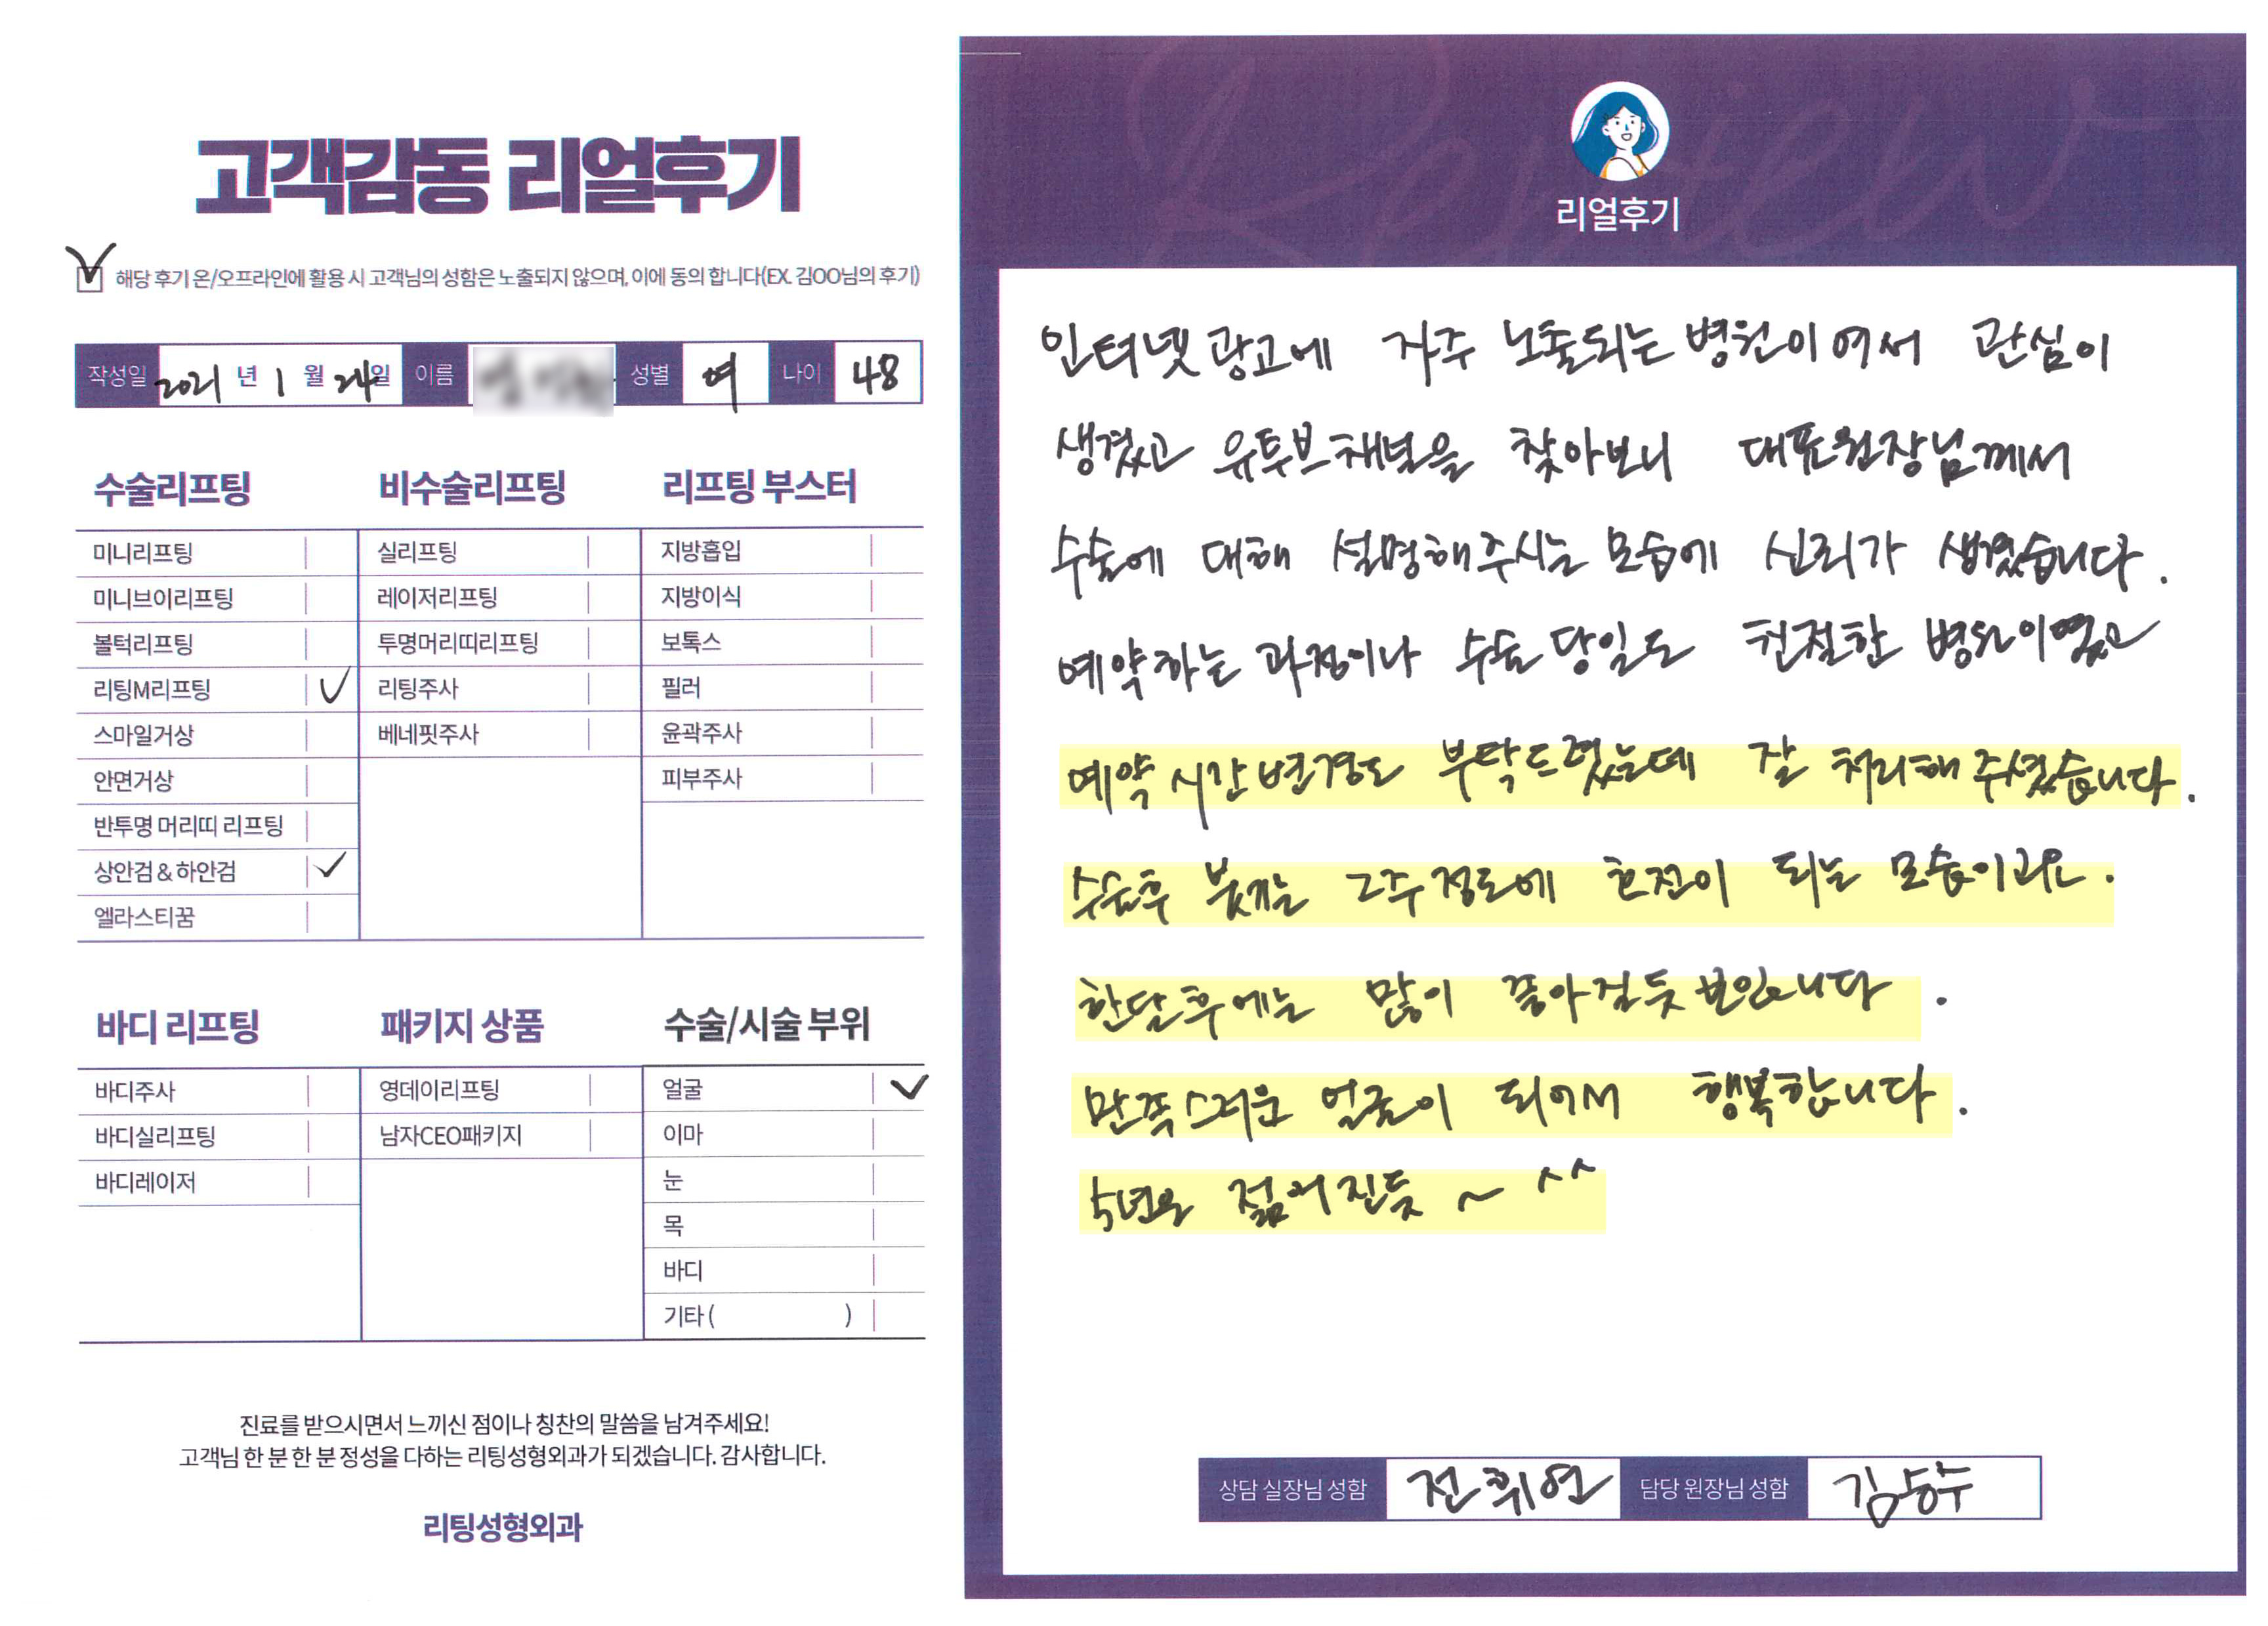 고객감동 리얼후기
해당 후기 온/오프라인에 활용 시 고객님의 성함은 노출되지 않으며, 이에 동의 합니다(EX. 김OO님의 후기)
작성일 2021 년 1 월 24일 이름 성별 여 나이 48
수술리프팅
미니리프팅
미니브이리프팅
볼턱리프팅
리팅M리프팅
스마일거상
안면거상
반투명 머리띠 리프팅
상안검 & 하안검
엘라스티꿈
비수술리프팅
실리프팅
레이저리프팅
투명머리띠리프팅
리팅주사
베네핏주사
리프팅 부스터
지방흡입
지방이식
보톡스
필러
윤곽주사
피부주사
바디 리프팅
바디주사
바디실리프팅
바디레이저
패키지 상품
영데이리프팅
남자CEO패키지
수술/시술 부위
얼굴
이마
눈
목
바디
기타 ( )
진료를 받으시면서 느끼신 점이나 칭찬의 말씀을 남겨주세요!
고객님 한 분 한 분 정성을 다하는 리팅성형외과가 되겠습니다. 감사합니다.
리팅성형외과
Review
리얼후기
인터넷 광고에 자주 노출되는 병원이어서 관심이
생겼고 유투브채널을 찾아보니 대표원장님께서
수술에 대해 설명해주시는 모습에 신뢰가 생겼습니다.
예약하는 과정이나 수술 당일도 친절한 병원이였고
예약 시간변경도 부탁드렸는데 잘 처리해 주셨습니다.
수술후 붓기는 2주정도에 호전이 되는 모습이고요.
한달후에는 많이 좋아질듯 보입니다.
만족스러운 얼굴이 되어서 행복합니다.
5년은 젊어진듯 ~ ^^
상담 실장님 성함 전휘연 담당 원장님 성함